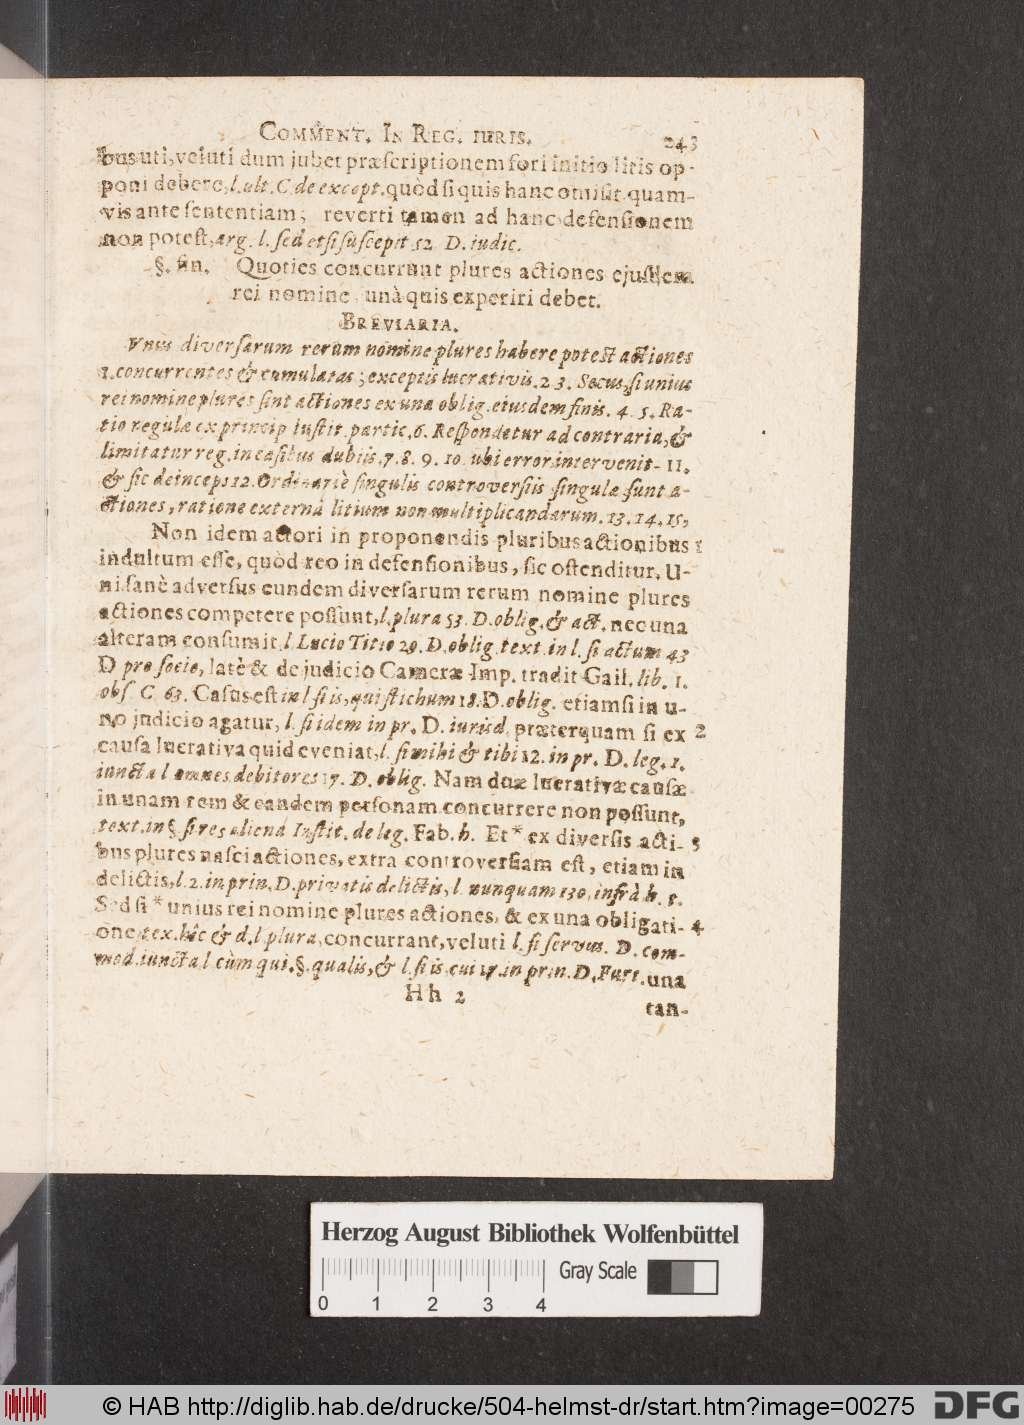 COMMENT. IN REG. IURIS. 243
bus uti, veluti dum jubet præscriptionem fori initio litis op-
poni debere, l. ult. C. de except. quòd si quis hanc omisit quam-
vis ante sententiam; reverti tamen ad hanc defensionem
non potest, arg. l. sed etsi suscepit 52 D. iudic.
§. fin. Quoties concurrunt plures actiones ejusdem
rei nomine unà quis experiri debet.
BREVIARIA.
Vnus diversarum rerum nomine plures habere potest actiones
1. concurrentes & cumulatas; exceptis lucrativis. 2 3. Secus, si unius
rei nomine plures sint actiones ex una oblig. eiusdem finis. 4. 5. Ra-
tio regulæ ex princip iustit. partic. 6. Respondetur ad contraria, &
limitatur reg. in casibus dubiis. 7. 8. 9. 10. ubi error intervenit. 11.
& sic deinceps 12. Ordinariè singulis controversiis singulæ sunt a-
ctiones, ratione externâ litium non multiplicandarum. 13. 14. 15,
Non idem actori in proponendis pluribus actionibus 1
indultum esse, quòd reo in defensionibus, sic ostenditur. U-
ni sanè adversus eundem diversarum rerum nomine plures
actiones competere possunt, l. plura 53. D. oblig. & act. nec una
alteram consumit l Lucio Titio 20. D. oblig. text. in l. si actum 43
D pro socio, latè & de judicio Cameræ Imp. tradit Gail. lib. 1.
obs C. 63. Casus est in l si is, qui stichum 18. D. oblig. etiamsi in u-
no judicio agatur, l. si idem in pr. D. iurisd. præterquam si ex 2
causa lucrativa quid eveniat, l. si mihi & tibi 12. in pr. D. leg. 1.
iuncta l omnes debitores 17. D. oblig. Nam duæ lucrativæ causæ
in unam rem & eandem personam concurrere non possunt,
text. in § si res aliena Instit. de leg. Fab. h. Et * ex diversis acti- 3
bus plures nasci actiones, extra controversiam est, etiam in
delictis, l. 2. in prin. D. privatis delictis, l. nunquam 130. infrà h. t.
Sed si * unius rei nomine plures actiones, & ex una obligati- 4
one tex. hîc & d. l plura, concurrant, veluti l. si servus. D. com-
mod. iuncta l cùm qui. §. qualis, & l. si is cui 17. in prin. D. Furt. una
Hh 2 tan-
Herzog August Bibliothek Wolfenbüttel
0 1 2 3 4 Gray Scale
© HAB http://diglib.hab.de/drucke/504-helmst-dr/start.htm?image=00275 DFG